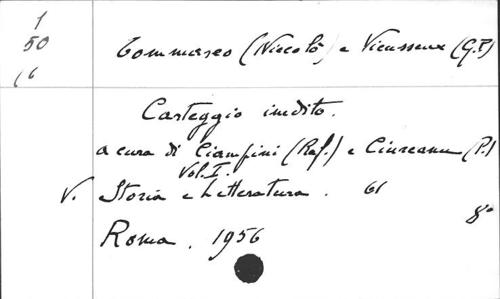 1
50
16
Tommaseo (Niccolò) e Vieusseux (G.P.)
Carteggio inedito.
a cura di Ciampini (Raf.) e Ciureanu (P.)
Vol. I.
V. Storia e Letteratura. 61
8°
Roma. 1956